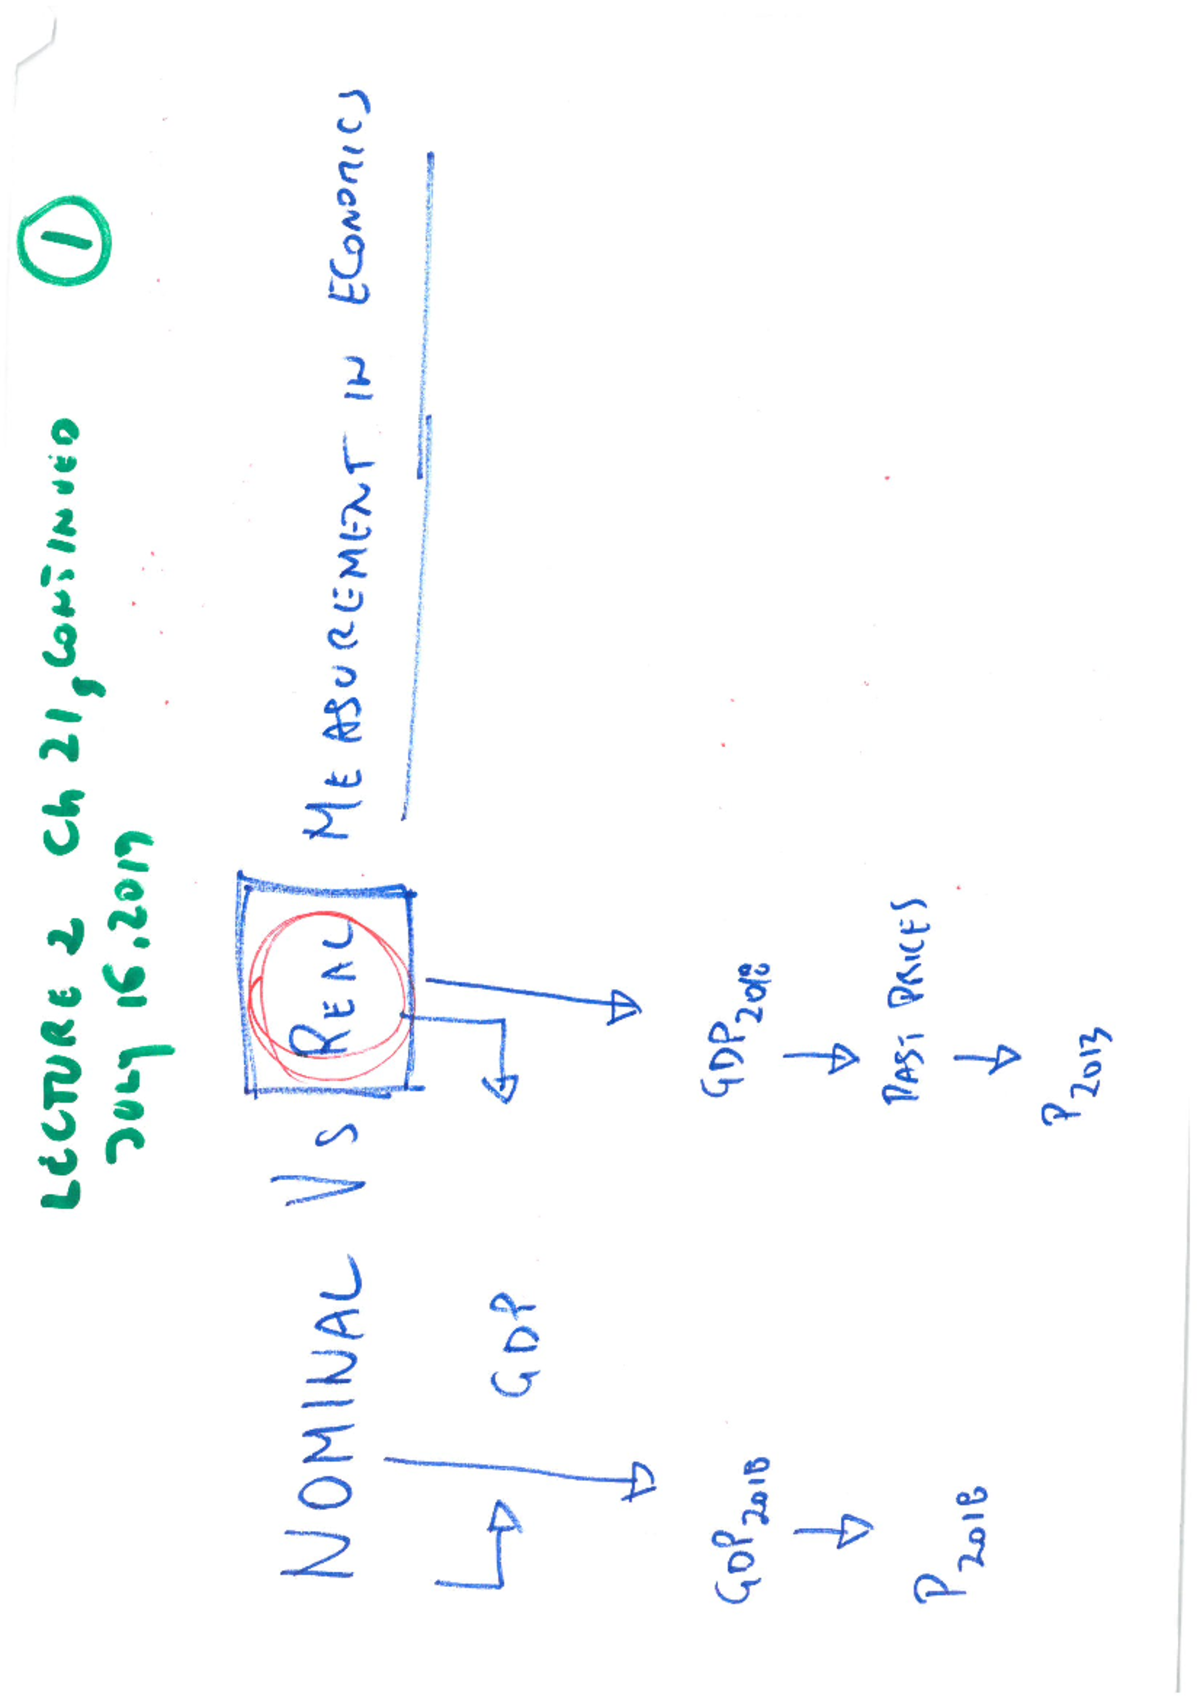 LECTURE 2 Ch 21, CONTINUED
①
JULY 16, 2019
NOMINAL VS REAL MEASUREMENT IN ECONOMICS
GDP
GDP2018
GDP2018
PAST PRICES
P2018
P2013